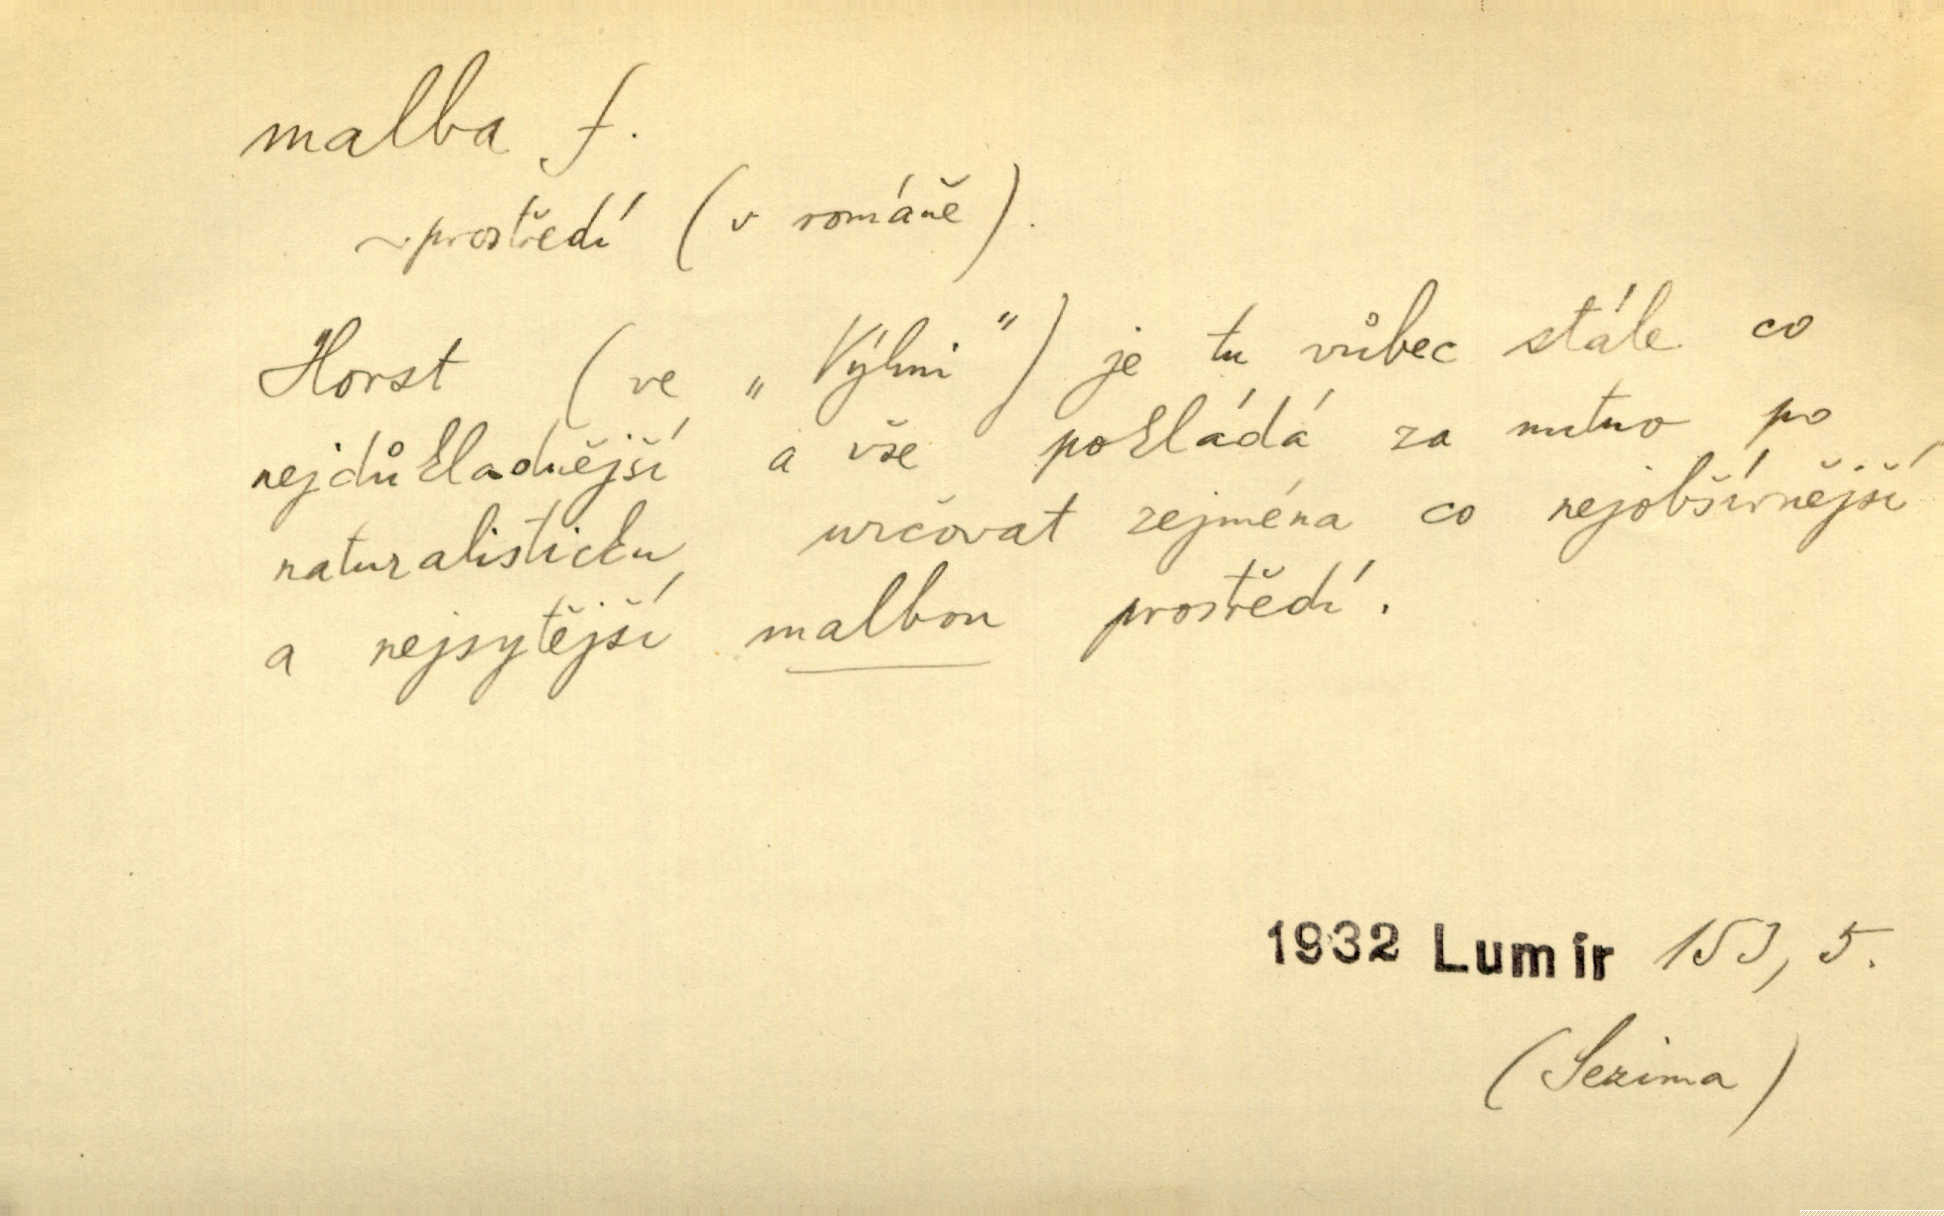 malba f.
~ prostředí (v románě).
Horst (ve „Výhni") je tu vůbec stále co
nejdůkladnější a vše pokládá za nutno po
naturalisticku určovat zejména co nejobšírnější
a nejsytější malbou prostředí.
1932 Lumír 153, 5.
(Sezima)